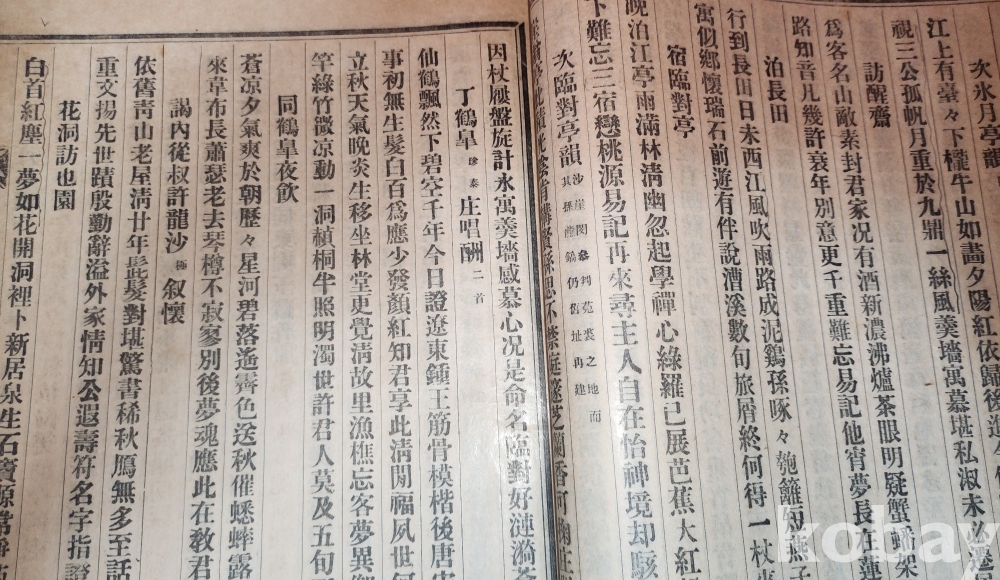 次氷月亭韻
江上有臺々下櫂牛山如畫夕陽紅依歸後進
視三公孤帆月重於九鼎一絲風羹墻寓慕堪私淑未必遷
訪醒齋
爲客名山敵素封君家况有酒新濃沸爐茶眼明疑蟹
路知音凡幾許衰年別意更千重難忘易記他宵夢長在蓮
泊長田
行到長田日未西江風吹雨路成泥鷄孫啄々匏籬短燕子
寓似鄕懷瑞石前遊有伴說漕溪數旬旅屑終何得一杖
宿臨對亭
晚泊江亭雨滿林淸幽忽起學禪心綠羅已展芭蕉大紅
下難忘三宿戀桃源易記再來尋主人自在怡神境却駭
次臨對亭韻 沙崖閔參判菟裘之地而其孫仍舊址再建
因杖屨盤旋計永寓羹墻感慕心况是命名臨對好漣漪
丁鶴皐 珍泰 庄唱酬 二首
仙鶴飄然下碧空千年今日證遼東鍾王筋骨模楷後唐
事初無生髮白百爲應少發顏紅知君享此淸閒福夙世
立秋天氣晚炎生移坐林堂更覺淸故里漁樵忘客夢異
竿綠竹微凉動一洞楨桐牛照明濁世許君人莫及五旬
同鶴皐夜飮
蒼凉夕氣爽於朝歷々星河碧落遙齊色送秋催蟋蟀露
來韋布長蕭瑟老去琴樽不寂寥別後夢魂應此在敎君
謁內從叔許龍沙 極 叙懷
依舊靑山老屋淸廿年髭髮對堪驚書稀秋鴈無多至話
重文揚先世蹟殷勤辭溢外家情知公遐壽符名字指
花洞訪也園
白首紅塵一夢如花開洞裡卜新居泉生石竇源常
kobay